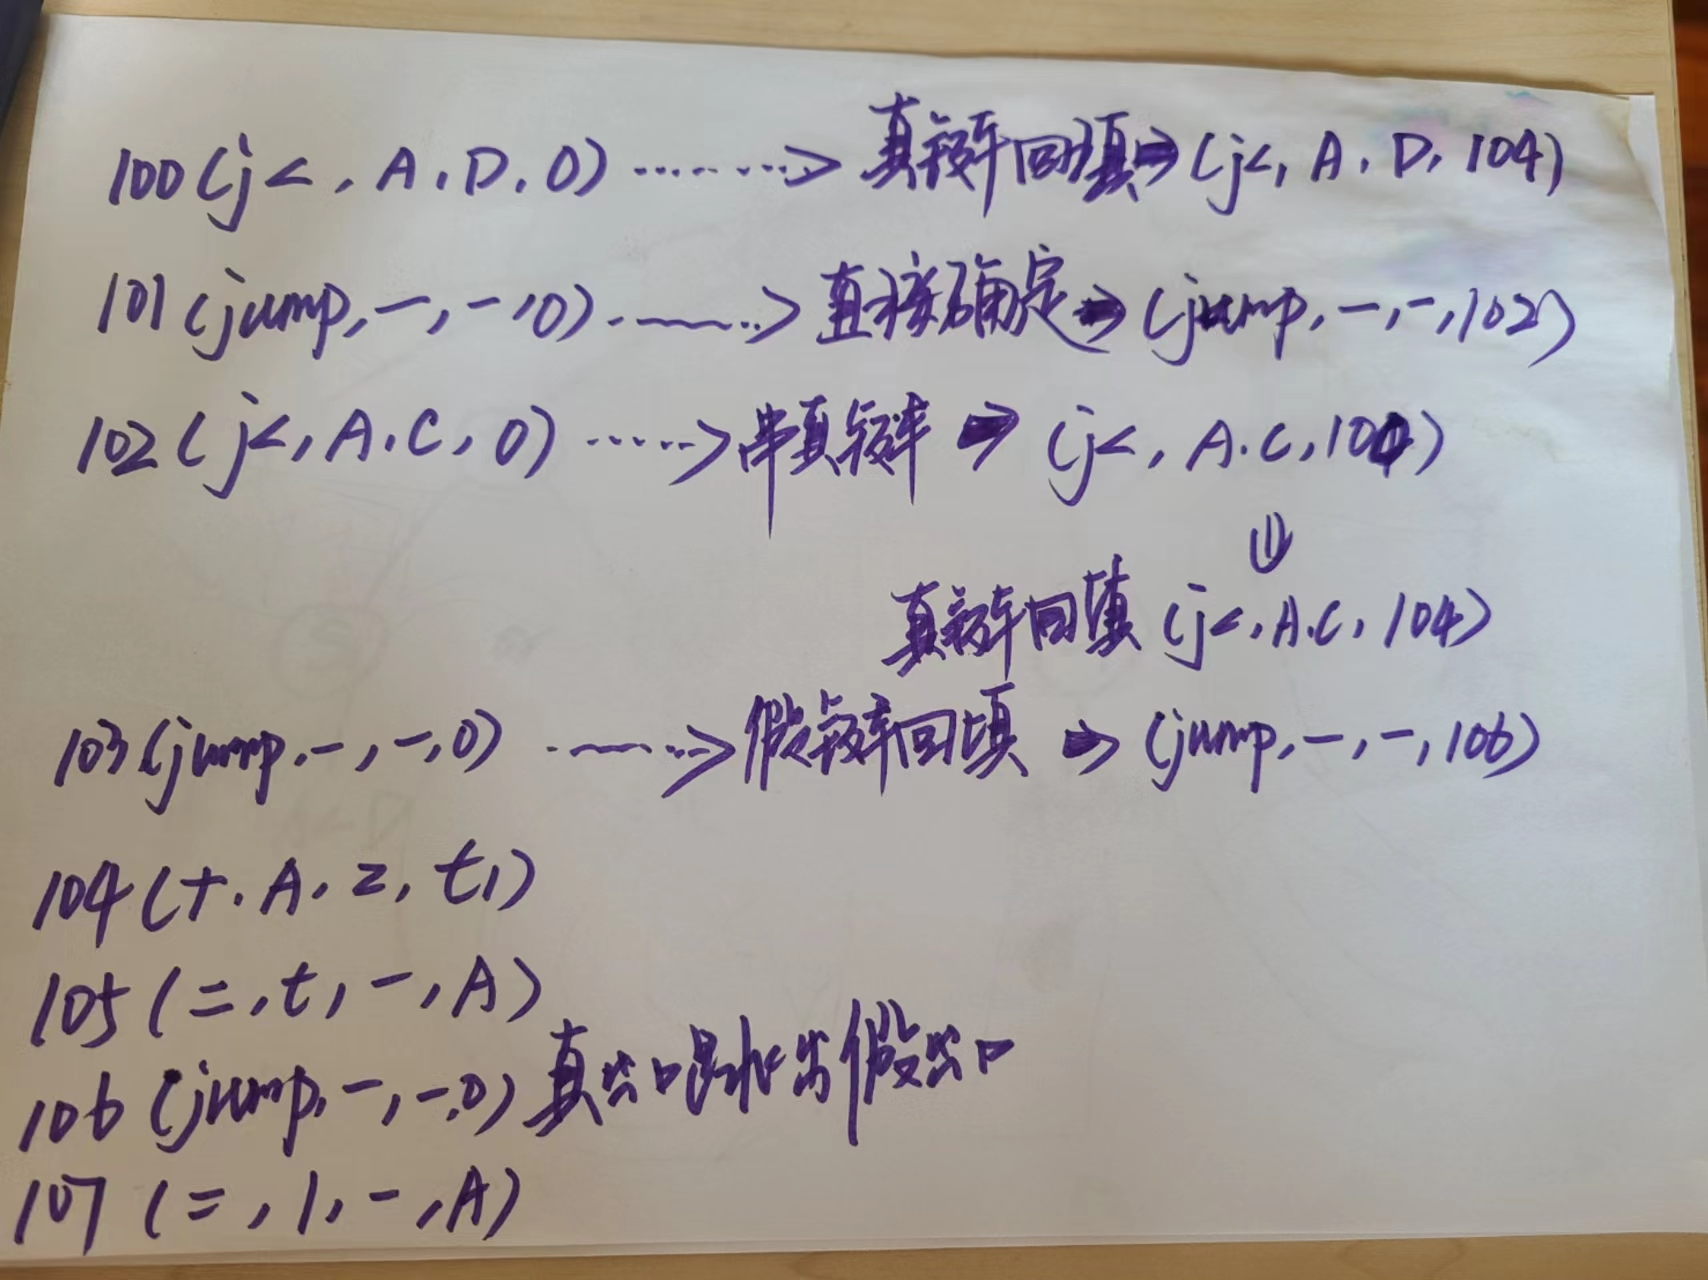 100(j<,A,D,0)……->真辩回填=>(j<,A,D,104)
101(jump,-,-,0)……->直接确定=>(jump,-,-,102)
102(j<,A.C,0)……->串真=>(j<,A.C,100)
⇓
真回填(j<,A.C,104)
103(jump,-,-,0)……->假回填=>(jump,-,-,106)
104(+.A.2,t1)
105(=,t1-,A)
106(jump,-,-,0)真出口跳出假出口
107(=,1,-,A)